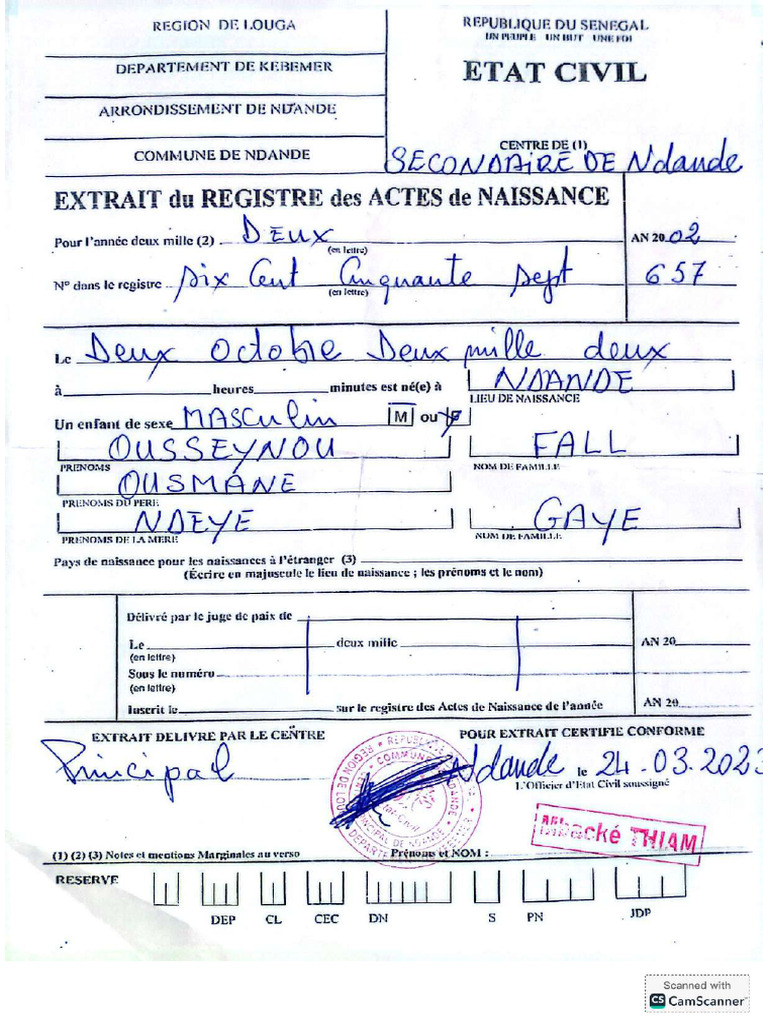 REGION DE LOUGA
DEPARTEMENT DE KEBEMER
ARRONDISSEMENT DE NDANDE
COMMUNE DE NDANDE
REPUBLIQUE DU SENEGAL
UN PEUPLE UN BUT UNE FOI
ETAT CIVIL
CENTRE DE (1)
SECONDAIRE DE Ndande
EXTRAIT du REGISTRE des ACTES de NAISSANCE
Pour l'année deux mille (2) Deux AN 20 02
(en lettre)
N° dans le registre Six Cent Cinquante Sept 657
(en lettre)
Le Deux Octobre Deux mille deux
à heures minutes est né(e) à NDANDE
LIEU DE NAISSANCE
Un enfant de sexe MASCULIN M ou F
OUSSEYNOU FALL
PRENOMS NOM DE FAMILLE
OUSMANE
PRENOMS DU PERE
NDEYE GAYE
PRENOMS DE LA MERE NOM DE FAMILLE
Pays de naissance pour les naissances à l'étranger (3)
(Écrire en majuscule le lieu de naissance ; les prénoms et le nom)
Délivré par le juge de paix de
Le deux mille AN 20
(en lettre)
Sous le numéro
(en lettre)
Inscrit le sur le registre des Actes de Naissance de l'année AN 20
EXTRAIT DELIVRE PAR LE CENTRE POUR EXTRAIT CERTIFIE CONFORME
Principal Ndande le 24.03.2023
L'Officier d'Etat Civil soussigné
REGION DE LOUGA
COMMUNE NDANDE
PRINCIPAL DE NDANDE
Etat-Civil
Mbacké THIAM
(1) (2) (3) Notes et mentions Marginales au verso Prénoms et NOM :
RESERVE
DEP CL CEC DN S PN JDP
Scanned with
CS CamScanner